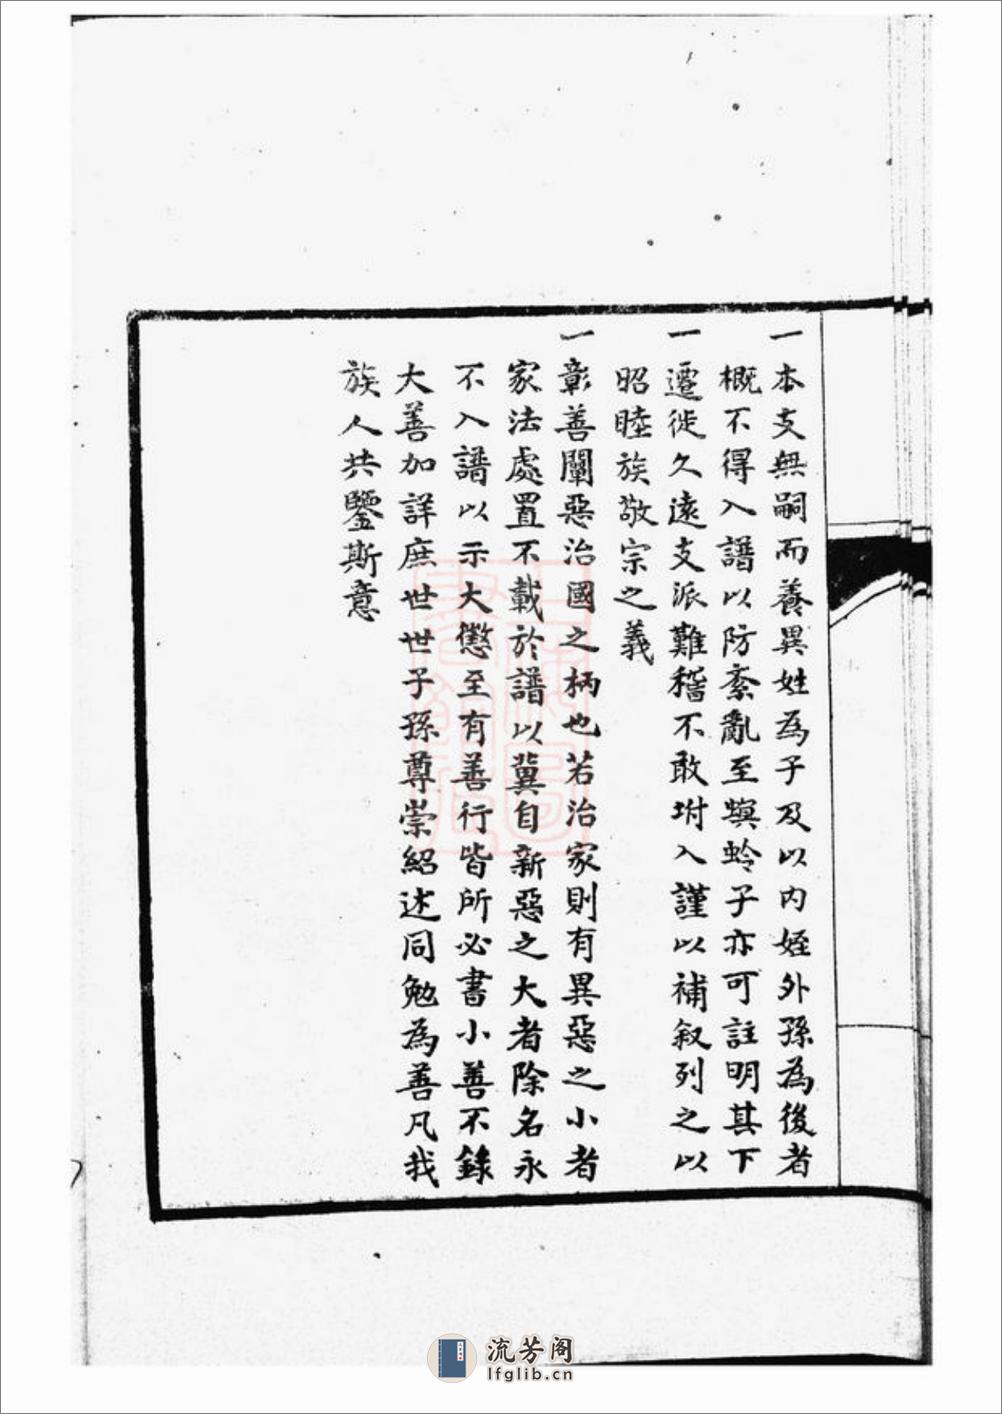 一本支無嗣而養異姓為子及以内姪外孫為後者
概不得入譜以防紊亂至螟蛉子亦可註明其下
一遷徙久遠支派難稽不敢坿入謹以補叙列之以
昭睦族敬宗之義
一彰善闡惡治國之柄也若治家則有異惡之小者
家法處置不載於譜以冀自新惡之大者除名永
不入譜以示大懲至有善行皆所必書小善不錄
大善加詳庶世世子孫尊崇紹述同勉為善凡我
族人共鑒斯意
流芳阁
lfglib.cn